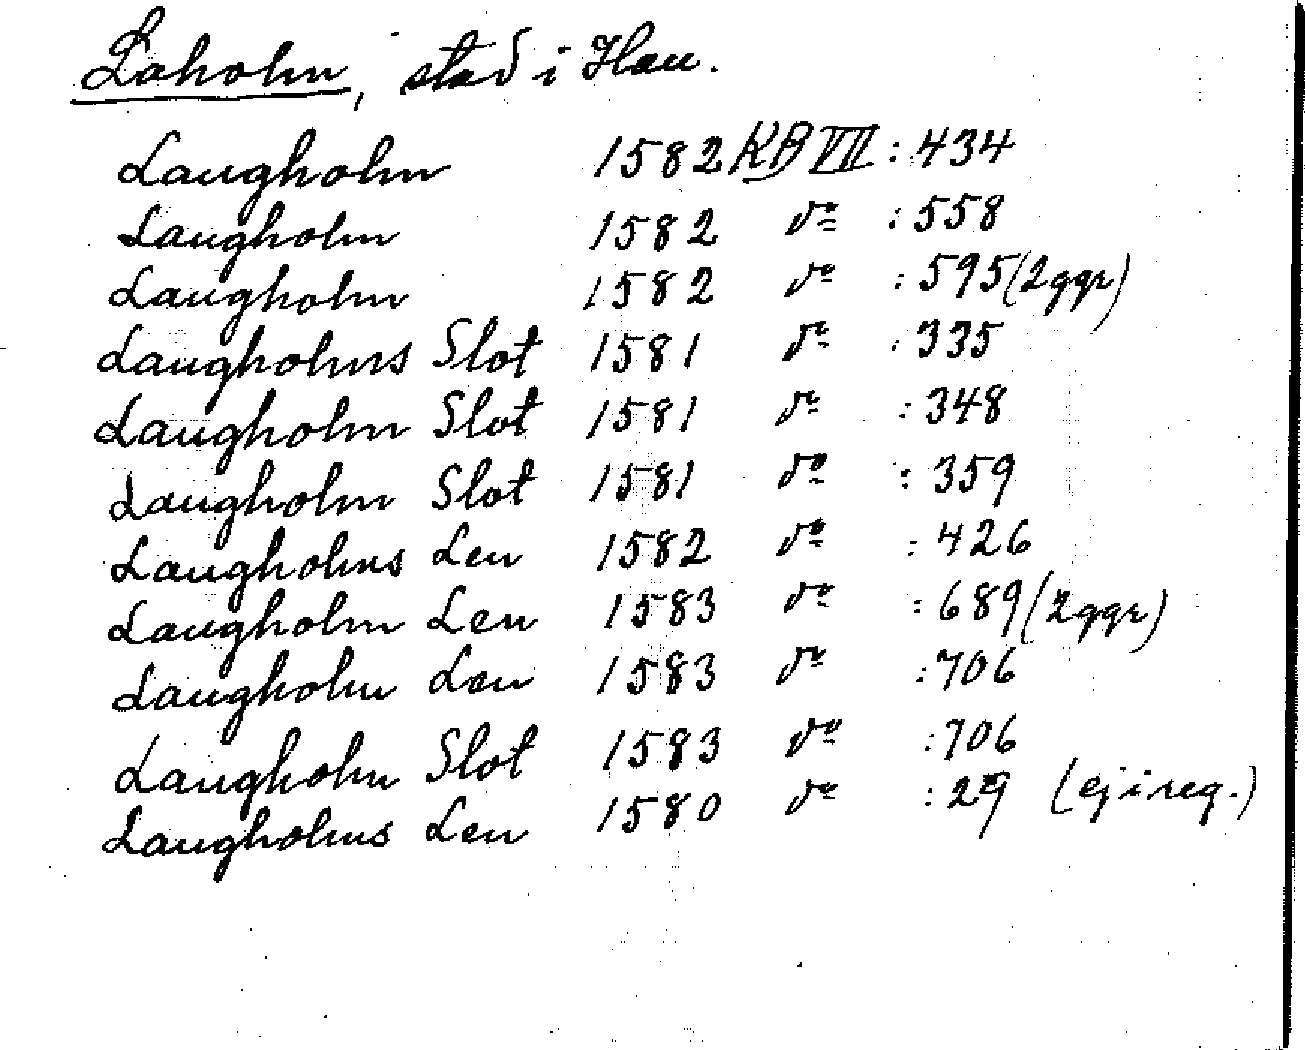 Laholm, stad i Hall.
Laugholm 1582 KB VII : 434
Laugholm 1582 do : 558
Laugholm 1582 do : 595 (2ggr)
Laugholms Slot 1581 do : 335
Laugholm Slot 1581 do : 348
Laugholm Slot 1581 do : 359
Laugholms Len 1582 do : 426
Laugholm Len 1583 do : 689 (2ggr)
Laugholm Len 1583 do : 706
Laugholm Slot 1583 do : 706
Laugholms Len 1580 do : 29 (ej i reg.)